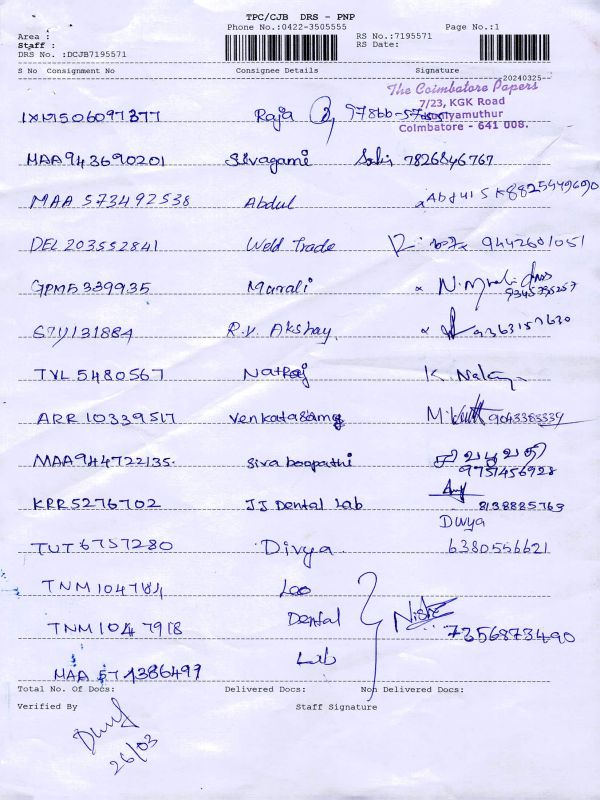 TPC/CJB DRS - PNP
Phone No.:0422-3505555 Page No.:1
Area :
Staff : RS No.:7195571
DRS No. :DCJB7195571 RS Date:
S No Consignment No Consignee Details Signature
20240325
The Coimbatore Papers
7/23, KGK Road
Coimbatore - 641 008.
IXM506097377 Raja
MAA943690201 Sivagami 7826846767
MAA 573492538 Abdul Abdul SK 8825449690
DEL 203552841 Weld Trade 9442601051
GPM5339935 Murali N. Murali
671131884 R.V. Akshay 9363157630
TVL 5480567 Natraj
ARR 10339517 Venkatasamy 9043385339
MAA944722135. Siva boopathi சிவபூபதி
9751456928
KRR5276702 JJ Dental Lab 8138885763
Divya
TUT 6757280 Divya 6380556621
TNM 104784 Leo
TNM 1047918 Dental Nisha 7356873490
MAA 571386497 Lab
Total No. Of Docs: Delivered Docs: Non Delivered Docs:
Verified By Staff Signature
26/03